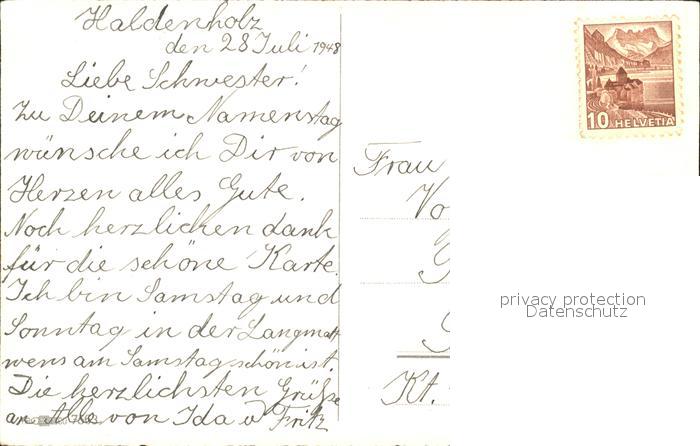 Haldenholz
den 28 Juli 1948
Liebe Schwester!
Zu Deinem Namenstag
wünsche ich Dir von
Herzen alles Gute.
Noch herzlichen dank
für die schöne Karte.
Ich bin Samstag und
Sonntag in der Langmatt
wens am Samstag schön ist.
Die herzlichsten Grüße
an Alle von Ida u Fritz
Frau
Kt.
10 HELVETIA
privacy protection
Datenschutz